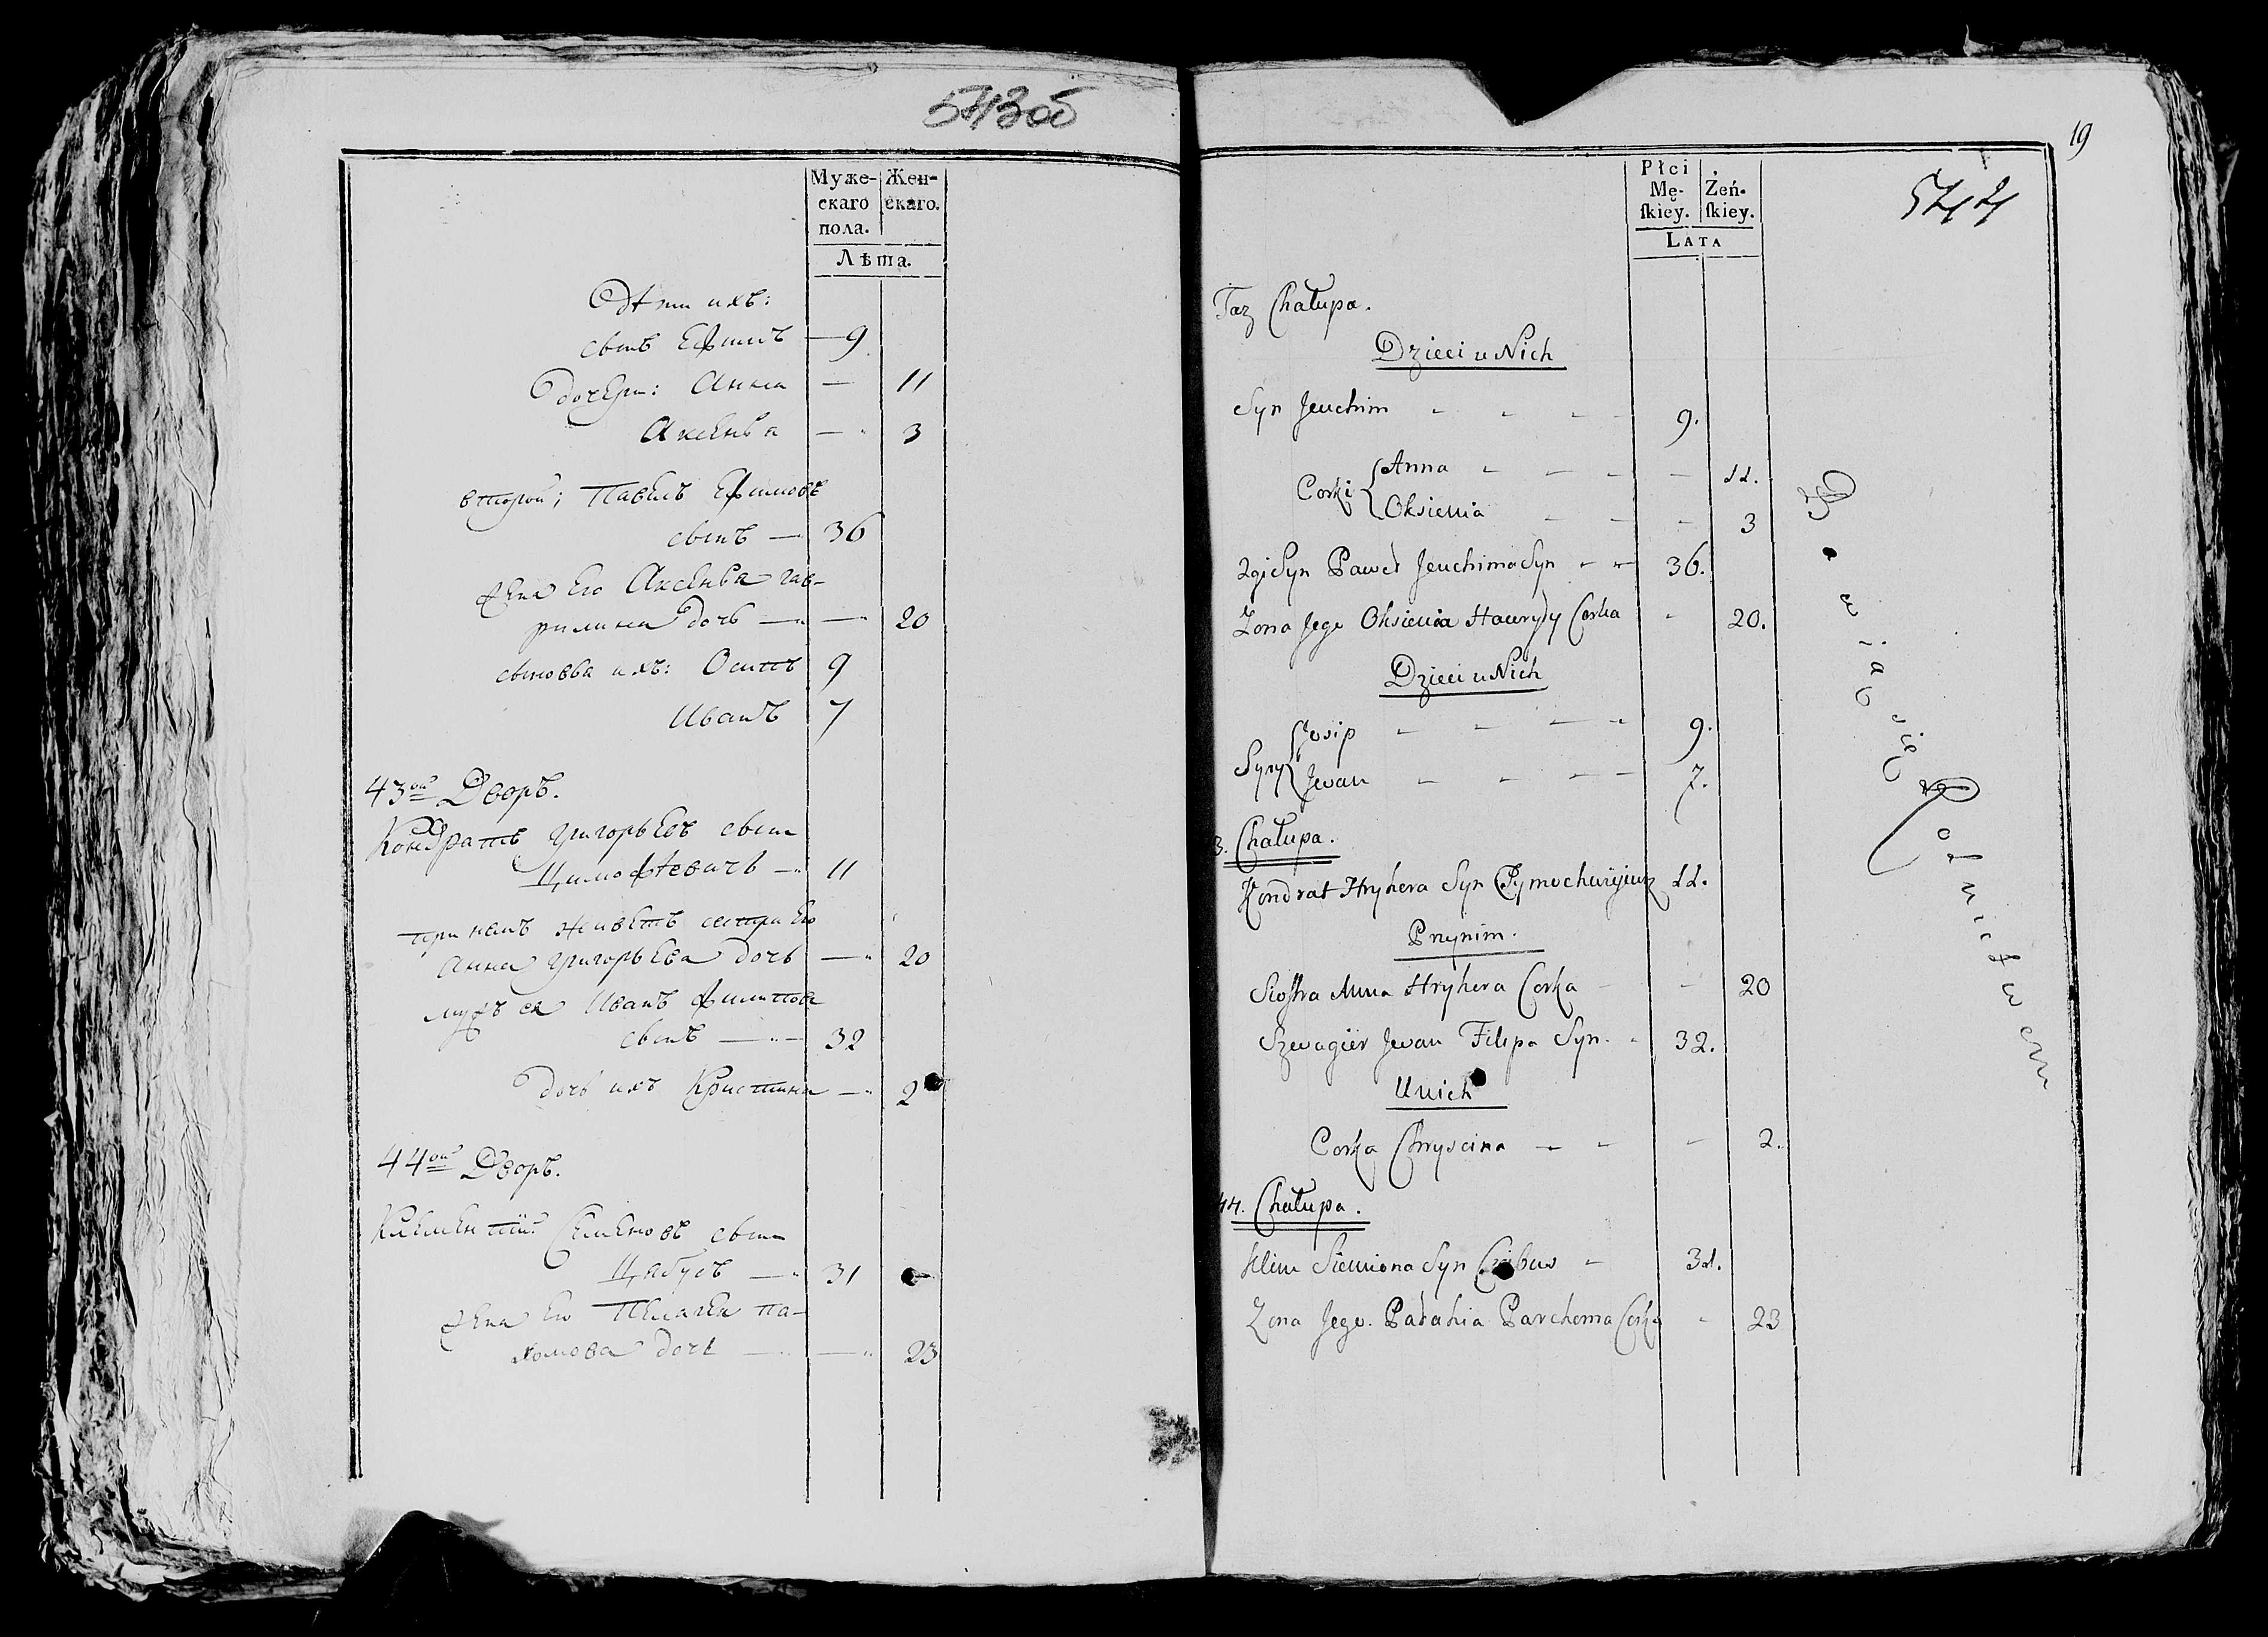 543 об
Муже-
скаго
пола.
Жен-
скаго.
Лѣта.
Дѣти ихъ:
сынъ Ефимъ — 9
Дочери: Анна — 11
Аксенья — 3
второй; Павелъ Ефимовъ
сынъ — 36
жена его Аксенья гав-
рилина дочь — — 20
сыновья ихъ: Осипъ 9
Иванъ 7
43ой Дворъ.
Кондратъ григорьевъ сынъ
Цимофѣевичъ — 11
при немъ живетъ сестра его
Анна григорьева дочь — 20
мужъ ея Иванъ филипова
сынъ — 32
дочь ихъ Кристина — 2
44ой Дворъ.
Клементий Семеновъ сынъ
Цабусъ — 31 —
жена его Пелагея па-
хомова дочь — — 23
19
544
Płci
Mę-
ſkiey.
Żeń-
ſkiey.
LATA
Taz Chałupa.
Dzieci u Nich
Syn Jeuchim - - - - 9.
Corki Anna - - - - 11.
Oksienia - - - 3
2gi Syn Paweł Jeuchima Syn - - 36.
Zona Jego Oksienia Hawryły Corka - 20.
Dzieci u Nich
Syny Josip - - - - 9.
Jwan - - - - 7.
3. Chałupa.
Kondrat Hryhora Syn 11.
Przynim.
Siostra Anna Hryhora Corka - - 20
Szwagier Jwan Filipa Syn. - 32.
U nich
Corka Chryscina - - - 2.
44. Chałupa.
Klim Siemiona Syn - 31.
Zona Jego. Pałahia Parchoma Corka - 23